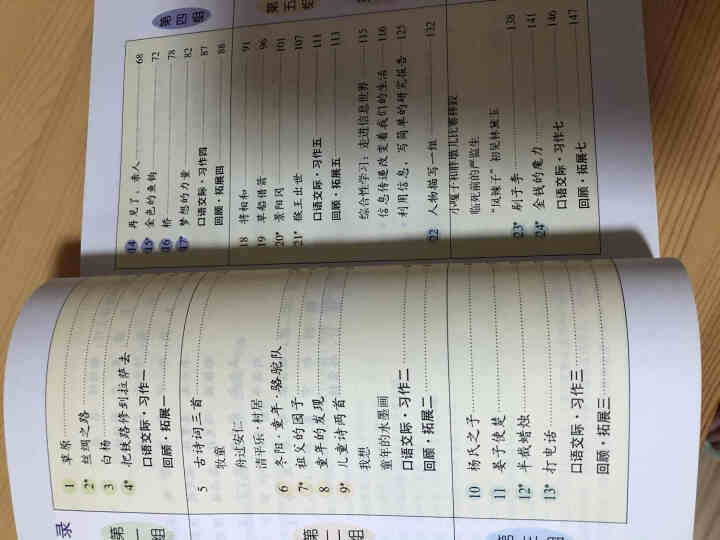 录
第一组
1 草原
2* 丝绸之路
3 白杨
4* 把铁路修到拉萨去
口语交际·习作一
回顾·拓展一
第二组
5 古诗词三首
牧童
舟过安仁
清平乐·村居
6 冬阳·童年·骆驼队
7* 祖父的园子
8 童年的发现
9* 儿童诗两首
我想
童年的水墨画
口语交际·习作二
回顾·拓展二
第三组
10 杨氏之子
11 晏子使楚
12* 半截蜡烛
13* 打电话
口语交际·习作三
回顾·拓展三
第四组
14 再见了,亲人 68
15* 金色的鱼钩 72
16 桥 78
17* 梦想的力量 82
口语交际·习作四 87
回顾·拓展四 88
第五组
18 将相和 91
19 草船借箭 96
20* 景阳冈 101
21* 猴王出世 107
口语交际·习作五 111
回顾·拓展五 113
综合性学习:走进信息世界 115
信息传递改变着我们的生活 116
利用信息,写简单的研究报告 125
22 人物描写一组 132
小嘎子和胖墩儿比赛摔跤
临死前的严监生
“凤辣子”初见林黛玉
23* 刷子李 138
24* 金钱的魔力 141
口语交际·习作七 146
回顾·拓展七 147